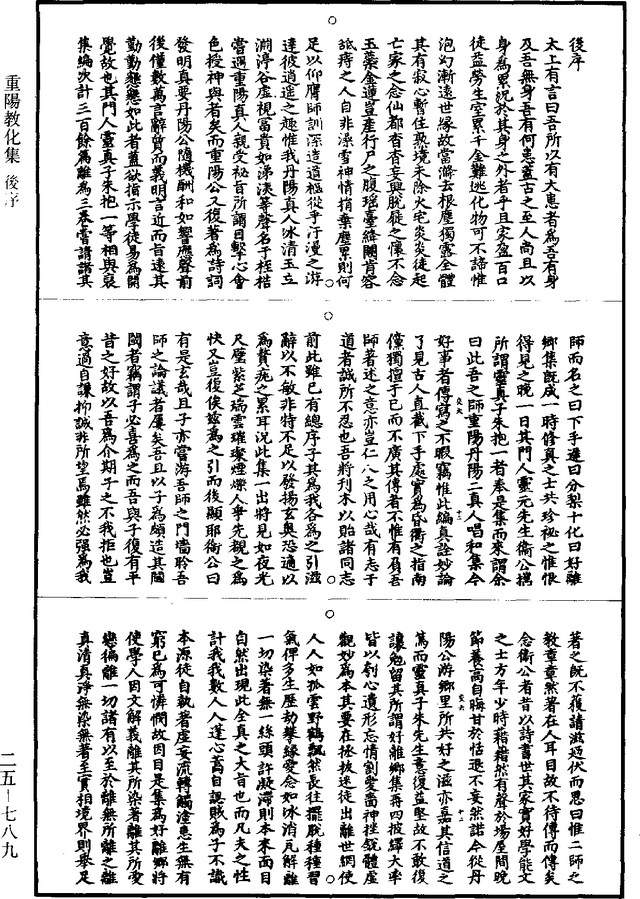 重陽教化集 後序
二五—七八九
後序
太上有言曰吾所以有大患者為吾有身
及吾無身吾有何患蓋古之至人尚且以
身為累況於其身之外者乎且家盈百口
徒益勞生室累千金難逃化物可不諦惟
泡幻漸遠世緣故當脩去根塵獨露全體
其有寂心暫住熟境未除火宅炎炎徒起
亡家之念仙都杳杳妄興脫屣之懷不念
玉蘂金蓮豈產行尸之腹瑤臺絳闕肯容
舐痔之人自非澡雪神情捐棄塵累則何
足以仰膺師訓深造道樞從乎汗漫之游
達彼逍遙之趣惟我丹陽真人冰清玉立
淵渟谷虛視富貴如涕洟等聲名于桎梏
當遇重陽真人親受祕旨所謂目擊心會
色授神與者矣而重陽公又復著為詩詞
發明真要丹陽公隨機酬和如響應聲前
後僅數萬言辭質而義明言近而旨遠其
勤勤懇懇如此者蓋欲指示學徒易為開
覺故也其門人靈真子朱抱一等相與裒
集編次計三百餘篇離為三卷嘗請諸其
師而名之曰下手遲曰分梨十化曰好離
鄉集既成一時修真之士共珍祕之惟恨
得見之晚一日其門人靈元先生衛公攜
所謂靈真子朱抱一者奉是集而來謂余
曰此吾之師重陽丹陽二真人唱和集今
好事者傳寫之不暇竊惟此編真詮妙論
了見古人直截下手處實為昏衢之指南
儻獨擅于己而不廣其傳者不惟有負吾
師著述之意亦豈仁人之用心哉有志于
道者誠所不忍也吾將刊木以貽諸同志
前此雖已有總序子其為我各為之引滋
辭以不敏非特不足以發揚玄奧恐適以
為贅疣之累耳況此集一出將見如夜光
尺璧紫芝端雲璀璨煙爍人爭先覩之為
快又豈復俟茲為之引而後顯耶衛公曰
有是玄哉且子亦嘗游吾師之門墻聆吾
師之論議者屢矣吾且以子為頗造其閫
閾者竊謂子必喜為之而吾與子復有平
昔之好故以吾為介期子之不我拒也豈
意過自謙抑誠非所望焉雖然必強為我
著之既不復請滋退伏而思曰惟二師之
教章章然著在人耳目故不待傳而傳矣
念衛公者昔以詩書世其家實好學能文
之士方年少時藉藉然有聲於場屋間晚
節養高自晦甘於恬退不妄然諾今從丹
陽公游鄉里所共好之滋亦嘉其信道之
篤而靈真子朱先生意復益堅故不敢復
讓勉留其所謂好離鄉集再四披繹大率
皆以刳心遺形忘情割愛嗇神挫銳體虛
觀妙為本其要在拯拔迷徒出離世網使
人人如孤雲野鶴飄然長往擺脫種種習
氣俾多生歷劫攀緣愛念如冰消瓦解離
一切染著無一絲頭許凝滯則本來面目
自然出現此全真之大旨也而凡夫之性
計我我數人人逢心蓄自認賊為子不識
本源徒自執著虛妄流轉觸塗患生無有
窮已為可憐憫故因目是集為好離鄉將
使學人因文解義離其所染著離其所愛
戀徧離一切諸有以至於離無所離之離
真清真淨無染無著至實相境界則舉足